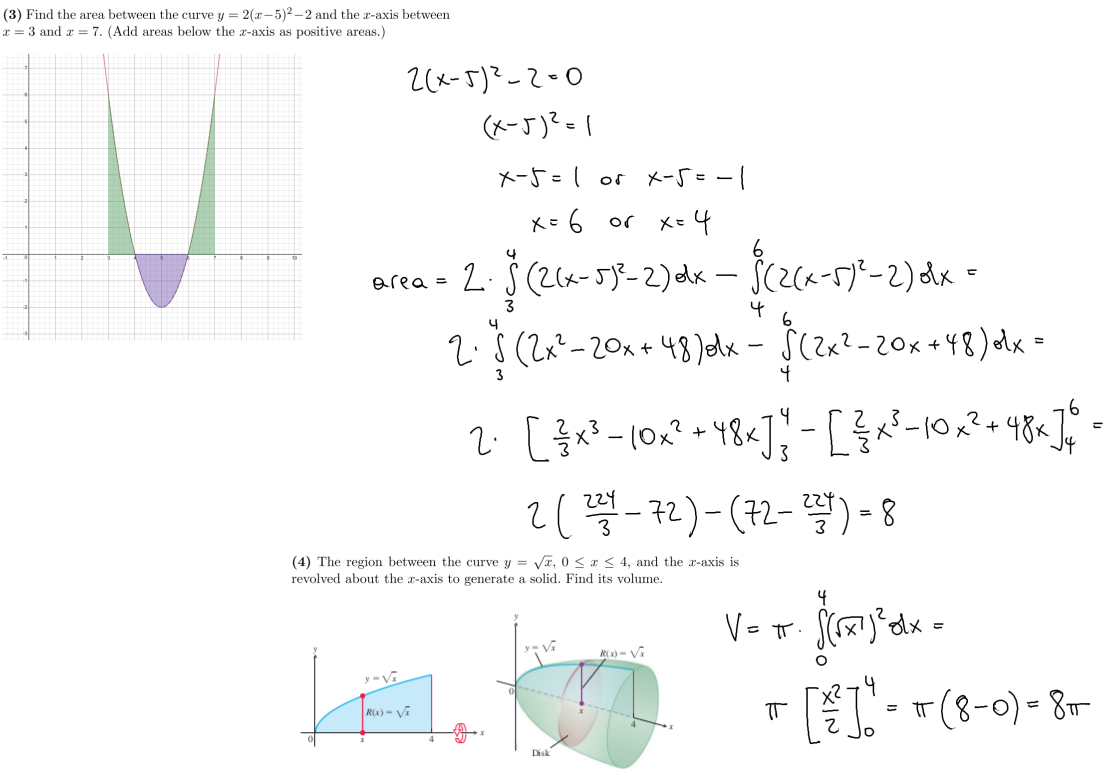 (3) Find the area between the curve y = 2(x−5)²−2 and the x-axis between
x = 3 and x = 7. (Add areas below the x-axis as positive areas.)
2(x-5)² - 2 = 0
(x-5)² = 1
x-5 = 1 or x-5 = -1
x = 6 or x = 4
area = 2 · ∫₃⁴ (2(x-5)² - 2) dx - ∫₄⁶ (2(x-5)² - 2) dx =
2 · ∫₃⁴ (2x² - 20x + 48) dx - ∫₄⁶ (2x² - 20x + 48) dx =
2 · [2/3 x³ - 10x² + 48x]₃⁴ - [2/3 x³ - 10x² + 48x]₄⁶ =
2 (224/3 - 72) - (72 - 224/3) = 8
(4) The region between the curve y = √x, 0 ≤ x ≤ 4, and the x-axis is
revolved about the x-axis to generate a solid. Find its volume.
y
y = √x
R(x) = √x
0
x
4
x
y
y = √x
R(x) = √x
0
x
4
x
Disk
V = π · ∫₀⁴ (√x)² dx =
π [x²/2]₀⁴ = π (8-0) = 8π